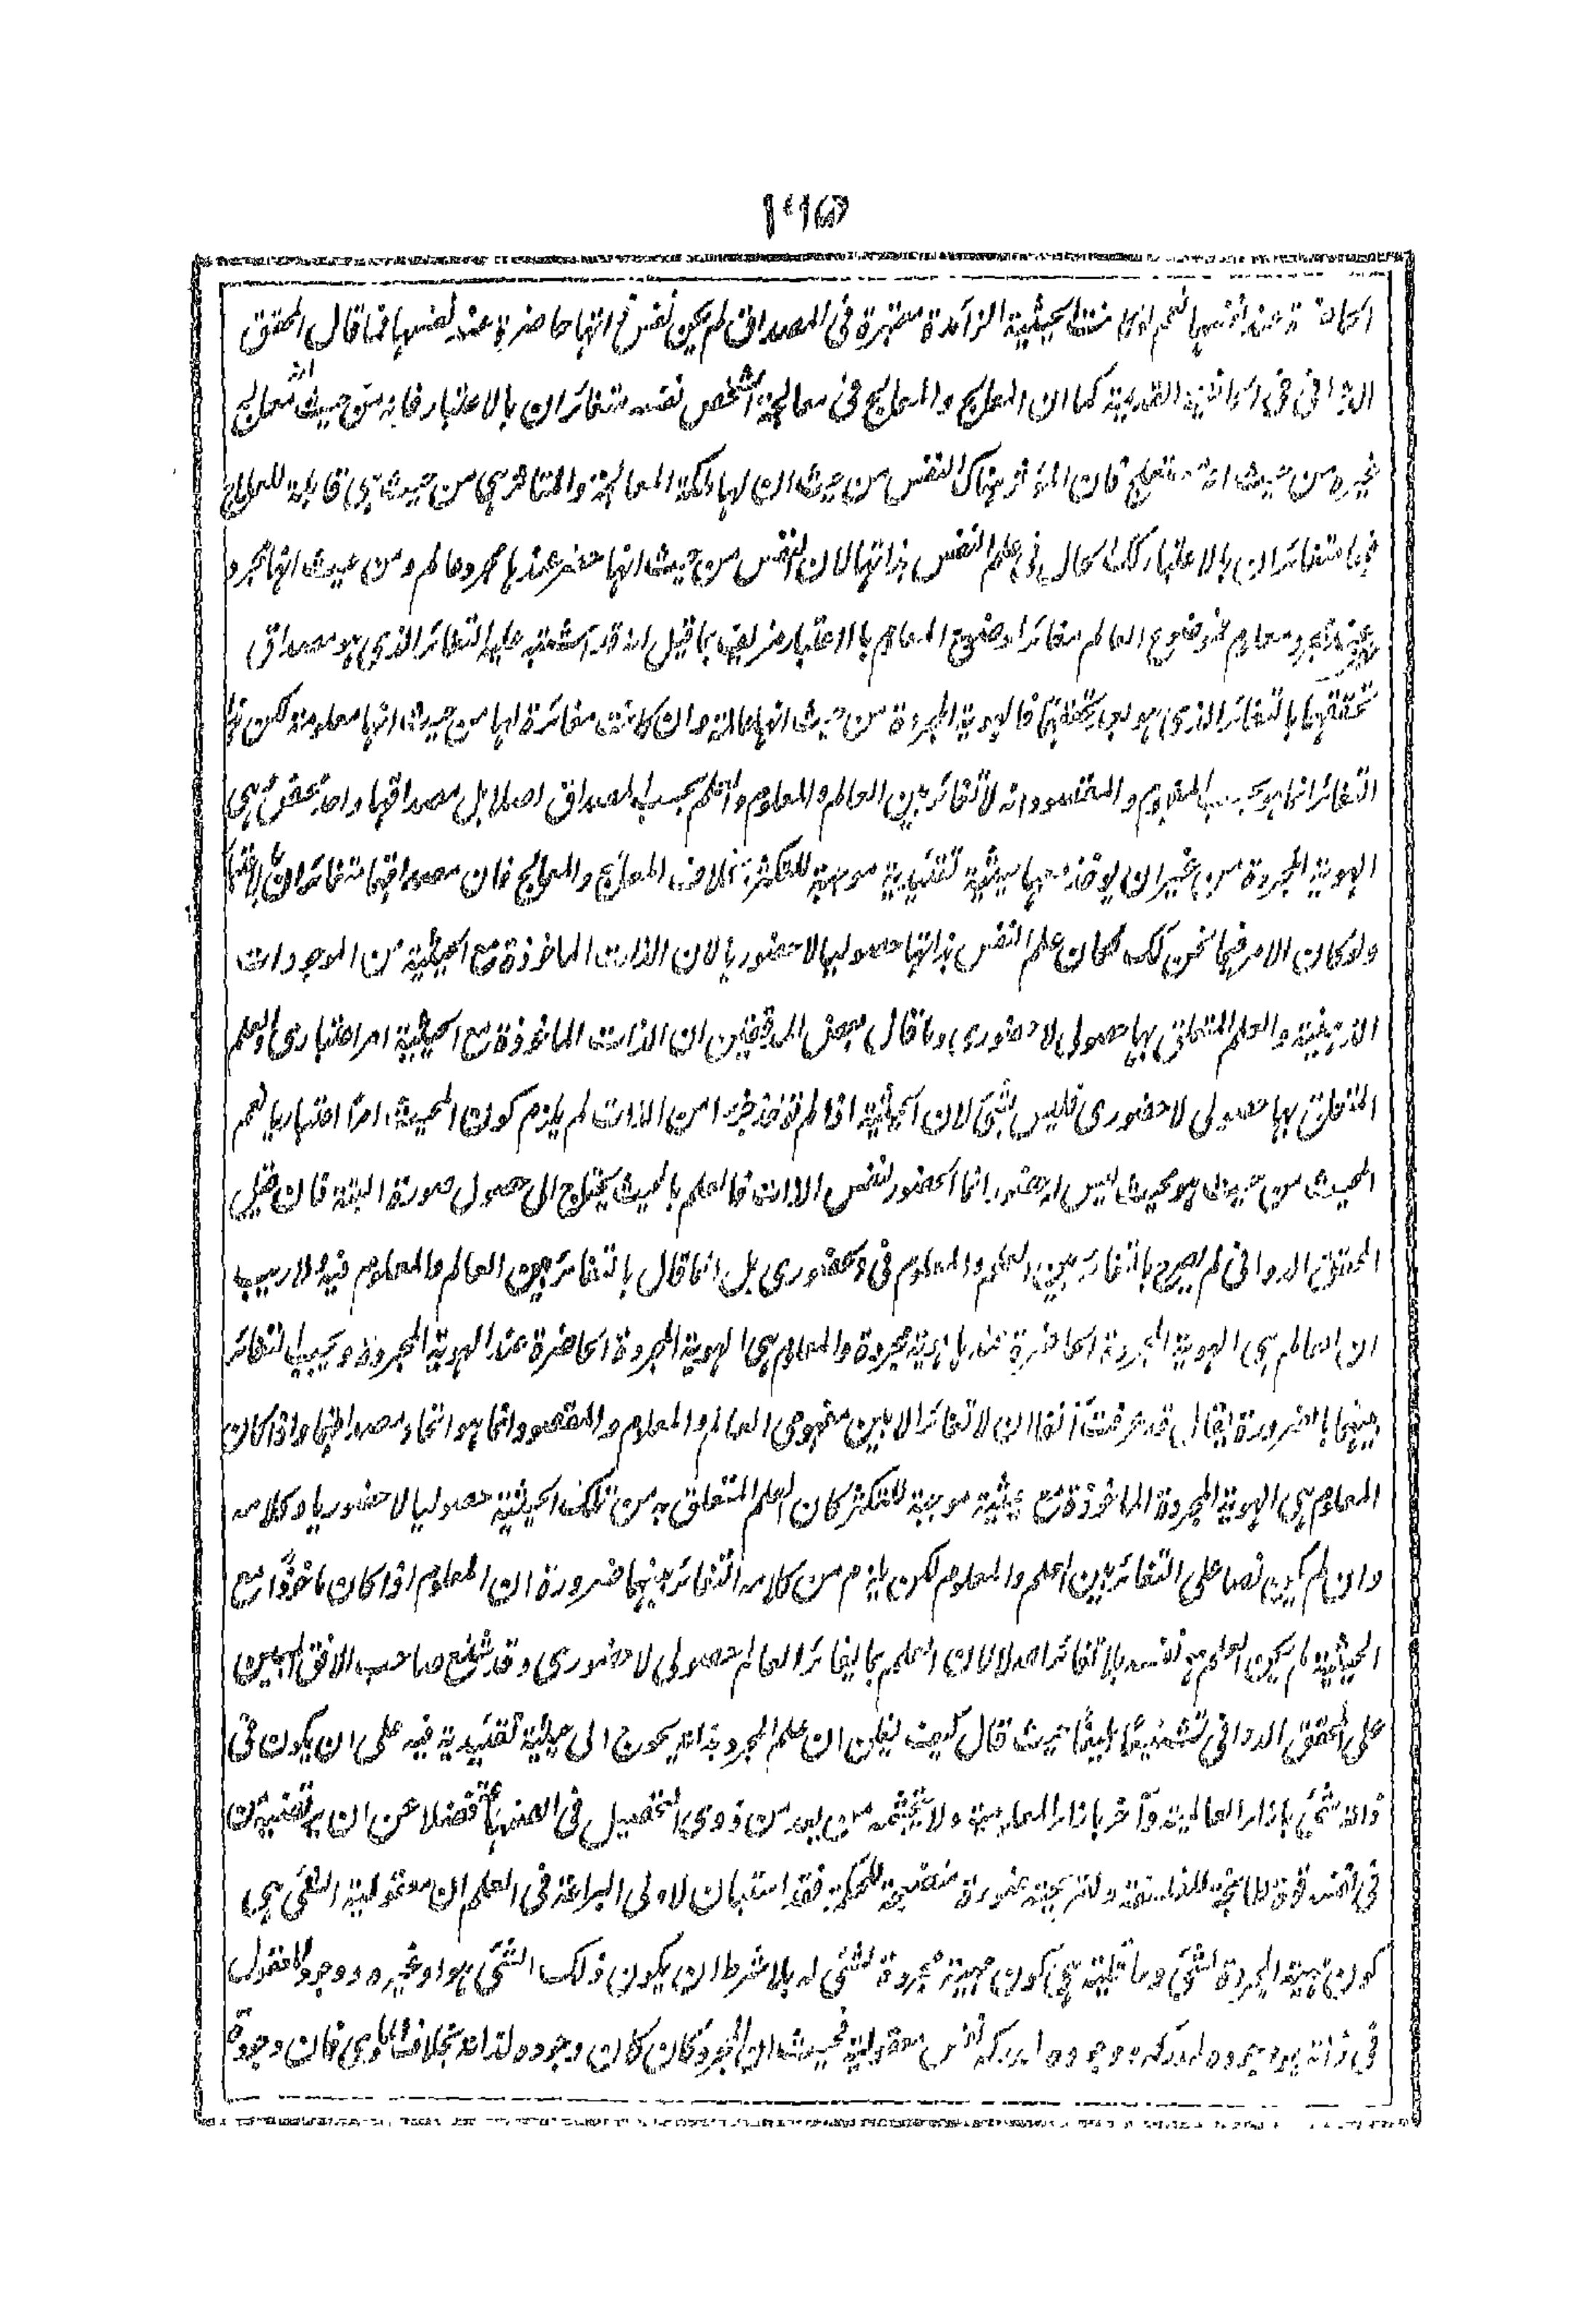 الحاضرة عند نفسها نعم لو كانت الحيثية الزائدة معتبرة فى المصداق لم يكن نفس ذاتها حاضرة عند نفسها فما قال المحقق
الدوانى فى الحاشية القديمة كما ان المعالج والمعالج فى معالجة الشخص نفسه متغائران بالاعتبار فانه من حيث انه معالج
غيره من حيث انه مستعلج فان المؤثر هناك النفس من حيث ان لها ملكة المعالجة والمتاثر هى من حيث هى قابلة للعلاج
فهما متغائران بالاعتبار كك الحال فى علم النفس بذاتها لان النفس من حيث انها حضر عندها مجرد عالم ومن حيث انها مجرد
عند مجرد معلوم فموضوع العالم مغائر لموضوع المعلوم بالاعتبار مزيف بما قيل انه قد اشتبه عليه التغائر الذى هو مصداق
تحققهما بالتغائر الذى هو بعد تحققهما فالهوية المجردة من حيث انها عالمة وان كانت مغائرة لها من حيث انها معلومة لكن هذا
التغائر انما هو بحسب المفهوم والمقصود انه لا تغائر بين العالم والمعلوم والعلم بحسب المصداق اصلا بل مصداقها واحد محض هى
الهوية المجردة من غير ان يوخذ معها حيثية تقئيدية موجبة للتكثر بخلاف المعالج والمعالج فان مصداقهما متغائران بالاعتبار
ولو كان الامر فيما نحن كك لكان علم النفس بذاتها حصوليا لا حضوريا لان الذات الماخوذة مع الحيثية من الموجودات
الذهنية والعلم المتعلق بها حصولى لا حضورى وما قال بعض المدققين ان الذات الماخوذة مع الحيثية امر اعتبارى والعلم
المتعلق بها حصولى لا حضورى فليس بشئ لان الحيثية اذا لم توخذ جزءا من الذات لم يلزم كون المحيث امرًا اعتباريا نعم
المحيث من حيث هو محيث ليس له حضور انما الحضور لنفس الذات فالعلم بالمحيث يحتاج الى حصول صورة البتة فان قيل
المحقق الدوانى لم يصرح بالتغائر بين العلم والمعلوم فى الحضورى بل انما قال بالتغائر بين العالم والمعلوم فيه ولا ريب
ان العالم هى الهوية المجردة الحاضرة عندها هوية مجردة والمعلوم هى الهوية المجردة الحاضرة عند الهوية المجردة ويجب التغائر
بينهما بالضرورة يقال قد عرفت آنفا ان لا تغائر الا بين مفهومى العالم والمعلوم والمقصود انما هو اتحاد مصداقهما واذا كان
المعلوم هى الهوية المجردة الماخوذة مع حيثية موجبة للتكثر كان العلم المتعلق به من تلك الحيثية حصوليا لا حضوريا وكلامه
وان لم يكن نصا على التغائر بين العلم والمعلوم لكن يلزم من كلامه التغائر بينهما ضرورة ان المعلوم اذا كان ماخوذًا مع
الحيثية لم يكن العلم نفسه بلا تغائر اصلا لان العلم بما يغائر العالم حصولى لا حضورى وقد شنع صاحب الافق المبين
على المحقق الدوانى تشنيعًا بليغًا حيث قال كيف يظن ان علم المجرد بذاته يحوج الى حيثية تقئيدية فيه على ان يكون فى
ذاته شئ بازاء العالمية وآخر بازاء المعلومية ولا يتجشمه من يعد من ذوى التحصيل فى الصناعة فضلا عن ان يرتضيه من
فى نفسه قوة للفلسفة ولقريحته منضجة للحكمة فقد استبان لاولى البراعة فى العلم ان معقولية الشئ هى
كون هوية المجردة لشئ وعاقلية هى كون هوية مجردة لشئ له بلا شرط ان يكون ذلك الشئ هو او غيره ووجود المعقول
فى ذاته هو وجوده لمدركه ووجوده لمدركه نفس معقولية فحيث ان المجرد كان وجوده لذاته بخلاف المادى فان وجوده